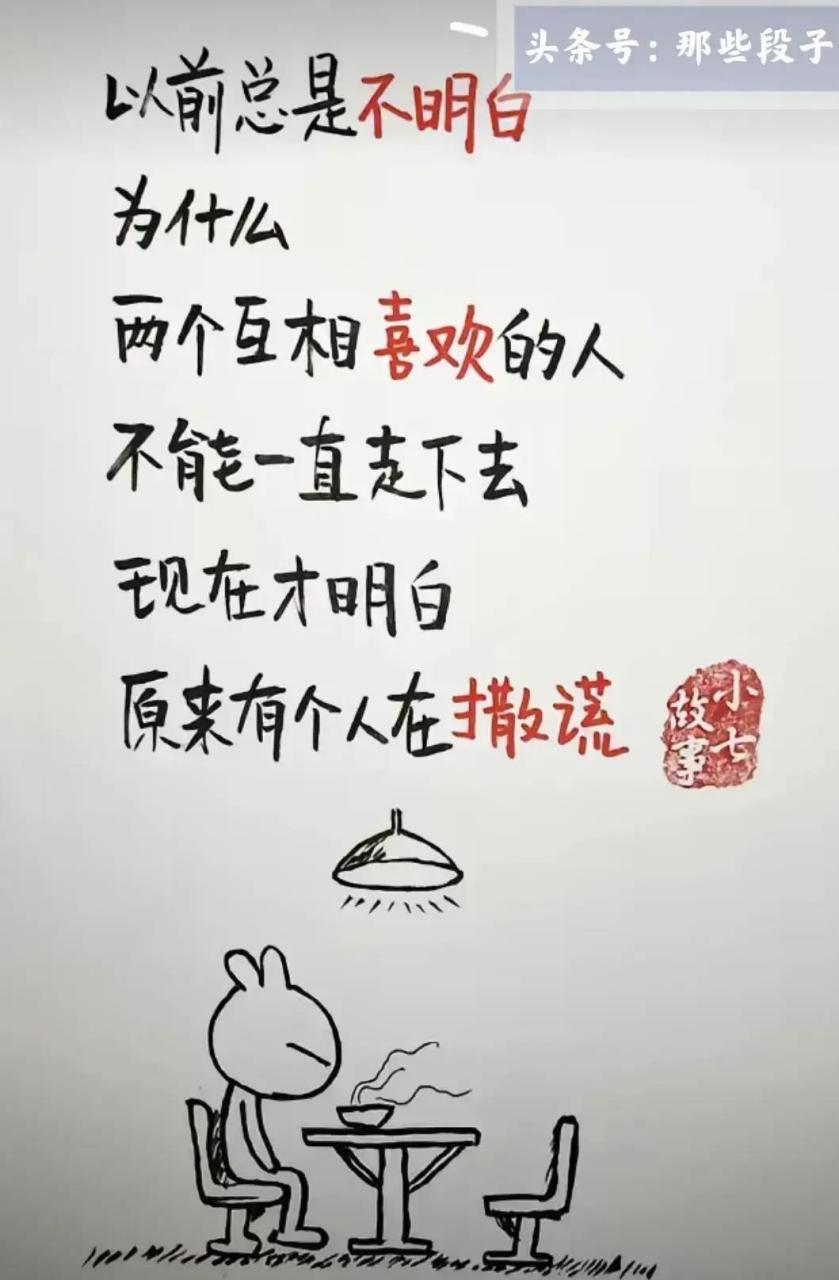 头条号：那些段子
以前总是不明白
为什么
两个互相喜欢的人
不能一直走下去
现在才明白
原来有个人在撒谎
小七
故事